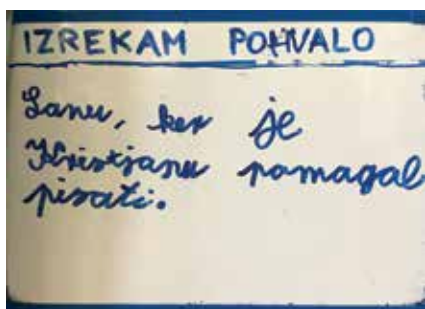 IZREKAM POHVALO
Janu, ker je
Kristjanu pomagal
pisati.